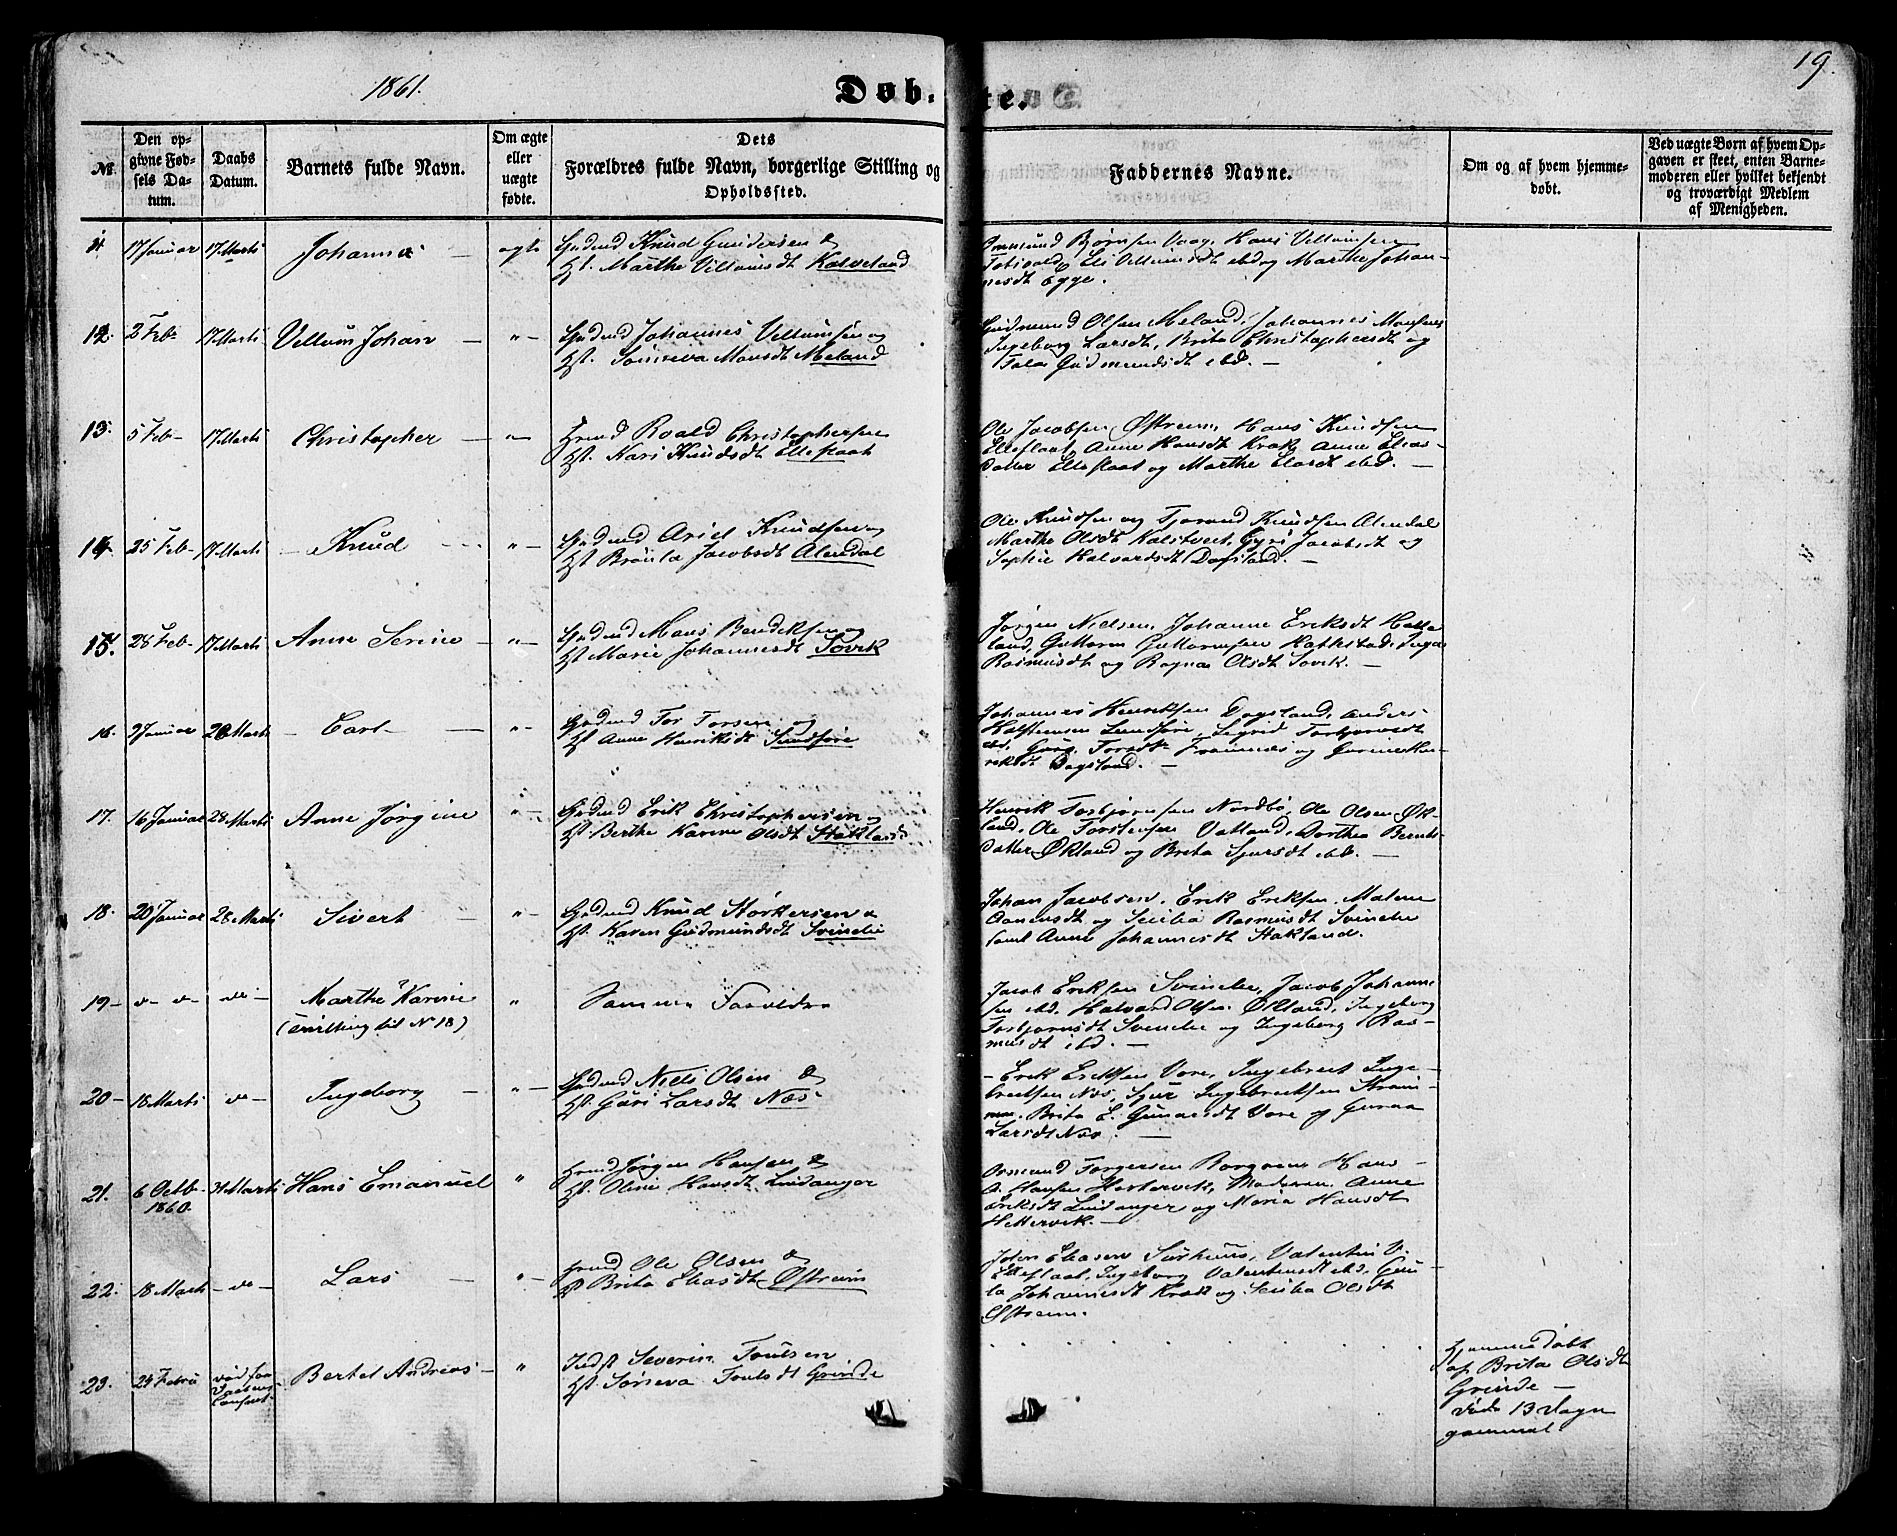 1861.
Døb-
te.
19.
№
Den op-
givne Fød-
sels Da-
tum.
Daabs
Datum.
Barnets fulde Navn.
Om ægte
eller
uægte
fødte.
Dets
Forældres fulde Navn, borgerlige Stilling og
Opholdssted.
Faddernes Navne.
Om og af hvem hjemme-
døbt.
Ved uægte Børn af hvem Op-
gaven er skeet, enten Barne-
moderen eller hvilket bekjendt
og troværdigt Medlem
af Menigheden.
11 17 Januar 17 Marts Johanna ægte Gudmd Knud Gundersen &
Hst. Marthe Villumsdt Kalveland
Bjørnsen Vaag, Hans Villumsen
Eli Villumsdt ibd og Marthe Johan-
nesdt Egge.
12. 2 Feb. 17 Marts Villum Johan "– Gudmd Johannes Villumsen og
Hst. Sønneva Monsdt Meland
Gudmund Olsen Meland, Johannes Monsen,
Ingeborg Larsdt, Brita Christophersdt og
Gudmundsdt ibd. –
13. 5 Feb– 17 Marts Christopher "– Roald Christophersen
Hst. Kari Knudsdt Elleflaat
Ole Jacobsen Østrem, Hans Knudsen
Elleflaat, Anne Hansdt Krak, Anne Elias-
datter Elleflaat og Marthe ibd. –
14. 25 Feb– 17 Marts – Knud "– Gudmd Knudsen og
Hst Jacobsdt Alendal
Ole Knudsen og Knudsen Alendal
Marthe Olsdt Jacobsdt og
Sophie Halvardsdt Dagsland. –
15. 28 Feb– 17 Marts Anne Serine "– Gudmd Mons Bendiksen og
Hst Marie Johannesdt Søvik
Jørgen Nielsen, Johanne Eriksdt Hette-
land, Guttorm Guttormsen
Rasmusdt og Ragna Olsdt Søvik. –
16. 9 Januar 28 Marts – Carl – "– Gudmd Tor Torsen og
Hst Anne Henriksdt Sundføre
Johannes Henriksen Dagsland, Anders
Sundføre, Sigrid Torbjørnsdt
ibd, Torsdt og
Dagsland. –
17. 16 Januar 28 Marts Anne Jørgine "– Gudmd Erik Christophersen og
Hst. Berthe Karine Olsdt Stakland
Henrik Torbjørnsen Nordbø, Ole Olsen Øk-
land, Ole Torstensen Valland, Dorthea Berents-
datter Økland og Brita Sjursdt ibd. –
18. 20 Januar 28 Marts Sivert "– Gudmd Knud Størkersen &
Hst. Karen Gudmundsdt Svinelie
Johan Jacobsen, Erik Eriksen, Malene
og Rasmusdt Svinelie
samt Anne Johannesdt Stakland.
19 – Marthe Karine " Samme Forældre
(Tvilling til N 18)
Jacob Eriksen Svinelie, Jacob Johanne-
sen ibd. Halvard Olsen Økland, Ingeborg
Torbjørnsdt Svinelie og Ingeborg Ras-
musdt ibd. –
20 – 18 Marts Ingeborg "– Gudmd Niels Olsen &
Hst. Guri Larsdt Næs
– Erik Eriksen Vore, Ingebret Inge-
bretsen Næs, Sjur Ingebretsen
Brita E. Gunarsdt Vore og
Larsdt Næs. –
21. 6 Octb– 31 Marts Hans Emanuel " Jørgen Hansen &
1860. Hst. Oline Hansdt Lindanger
Ormund Torgersen Borgøen, Hans
Hansen Hettervik, Moderen, Anne
Eriksdt Lindanger og Maria Hansdt
Hettervik. –
22. 18 Marts Lars "– Ole Olsen &
Hst Brita Eliasdt Østrem
John Eliasen Valentin V.
Elleflaat, Ingeborg Valentinsdt ibd,
Johannesdt Krak og Olsdt
Østrem.
23. 24 Febru død før Bertel Andreas – " Indst Severin Poulsen
Hst. Sønneva Poulsdt Grinde
Hjemmedøbt
af Brita Olsdt
Grinde –
død 13 Dage
gammel.